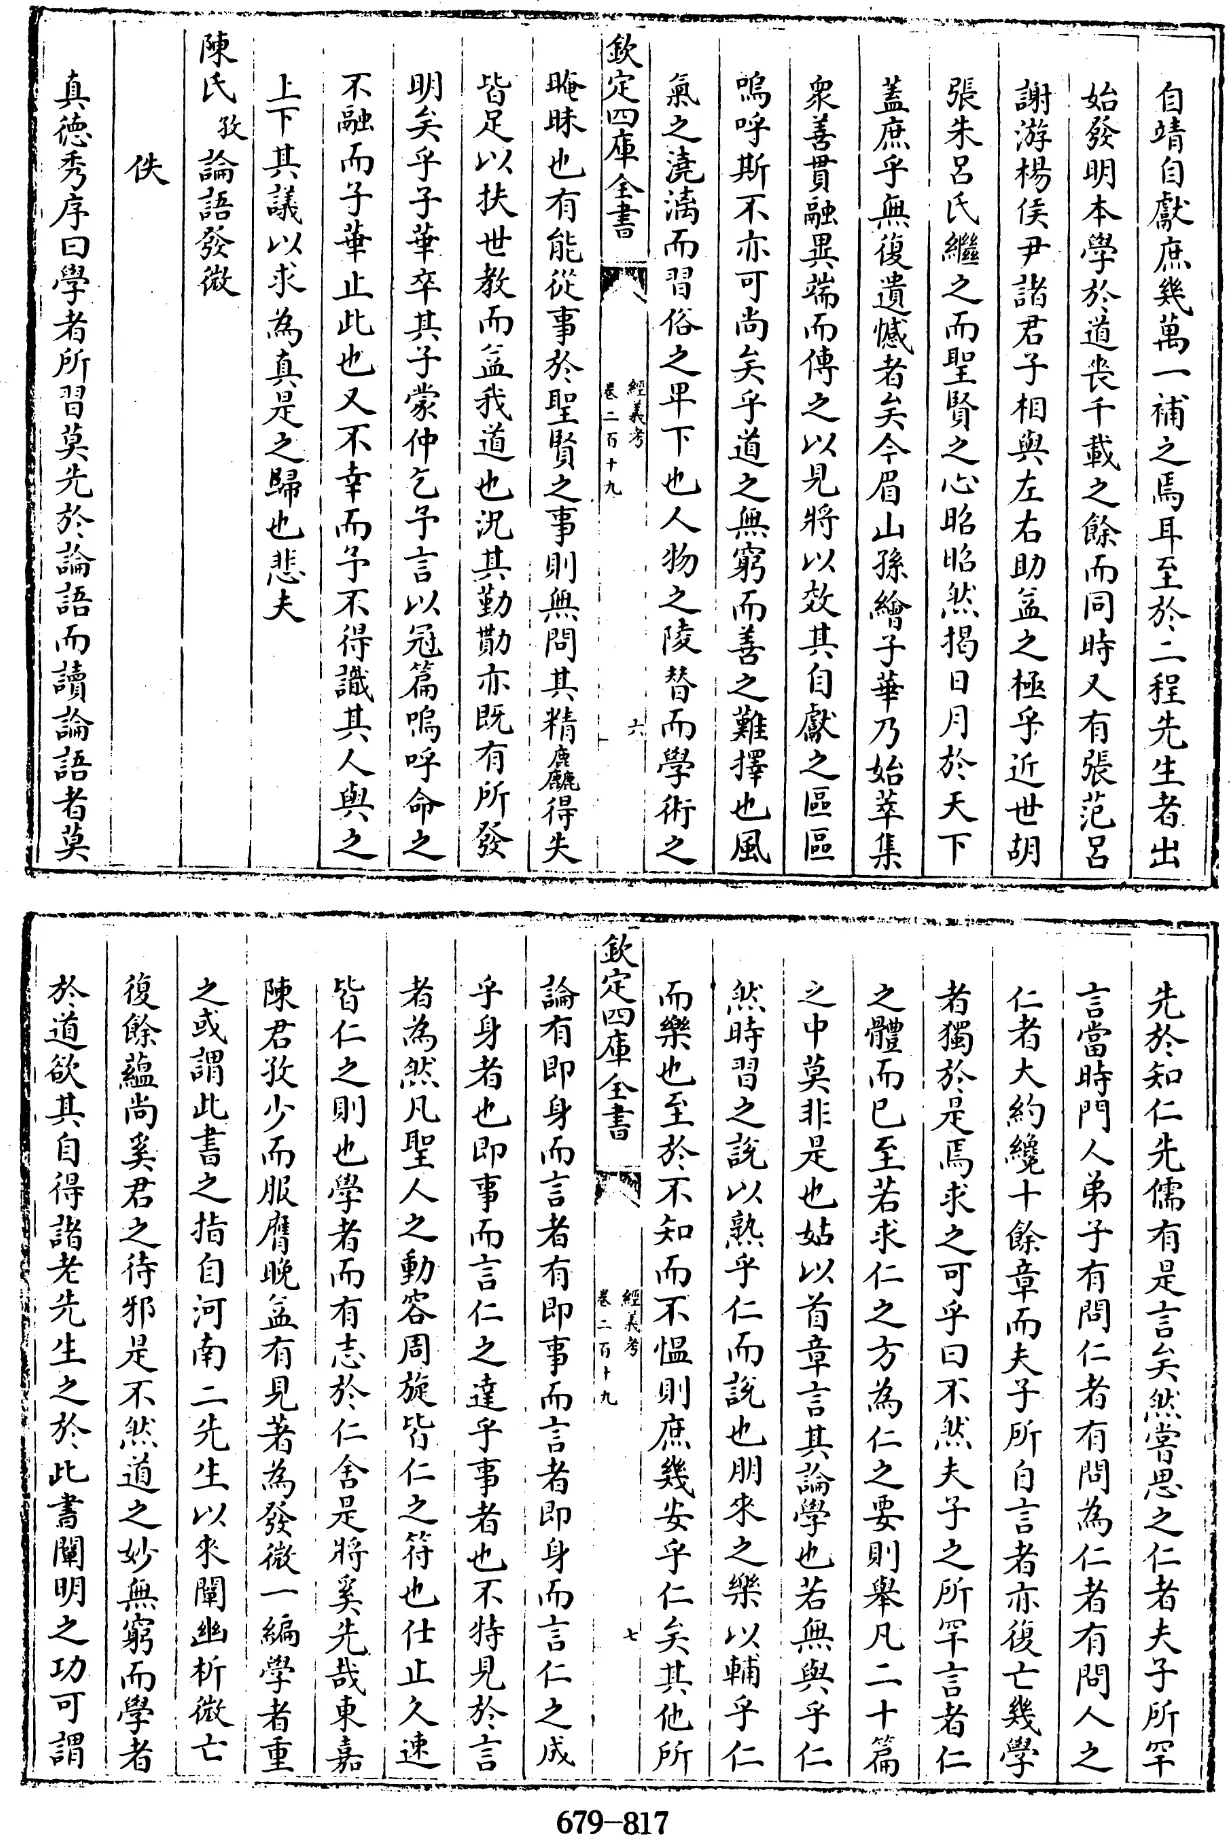 自靖自獻庶幾萬一補之焉耳至於二程先生者出
始發明本學於道喪千載之餘而同時又有張范呂
謝游楊侯尹諸君子相與左右助益之極乎近世胡
張朱呂氏繼之而聖賢之心昭昭然揭日月於天下
蓋庶乎無復遺憾者矣今眉山孫繪子華乃始萃集
衆善貫融異端而傳之以見將以效其自獻之區區
嗚呼斯不亦可尚矣乎道之無窮而善之難擇也風
氣之澆漓而習俗之卑下也人物之陵替而學術之
欽定四庫全書
經義考
卷二百十九
六
晻昧也有能從事於聖賢之事則無問其精麤得失
皆足以扶世教而益我道也況其勤勤亦既有所發
明矣乎子華卒其子蒙仲乞予言以冠篇嗚呼命之
不融而子華止此也又不幸而予不得識其人與之
上下其議以求為真是之歸也悲夫
陳氏孜論語發微
佚
真德秀序曰學者所習莫先於論語而讀論語者莫
先於知仁先儒有是言矣然嘗思之仁者夫子所罕
言當時門人弟子有問仁者有問為仁者有問人之
仁者大約纔十餘章而夫子所自言者亦復亡幾學
者獨於是焉求之可乎曰不然夫子之所罕言者仁
之體而已至若求仁之方為仁之要則舉凡二十篇
之中莫非是也姑以首章言其論學也若無與乎仁
然時習之說以熟乎仁而說也朋來之樂以輔乎仁
而樂也至於不知而不慍則庶幾安乎仁矣其他所
欽定四庫全書
經義考
卷二百十九
七
論有即身而言者有即事而言者即身而言仁之成
乎身者也即事而言仁之達乎事者也不特見於言
者為然凡聖人之動容周旋皆仁之符也仕止久速
皆仁之則也學者而有志於仁舍是將奚先哉東嘉
陳君孜少而服膺晚益有見著為發微一編學者重
之或謂此書之指自河南二先生以來闡幽析微亡
復餘蘊尚奚君之待邪是不然道之妙無窮而學者
於道欲其自得諸老先生之於此書闡明之功可謂
679-817